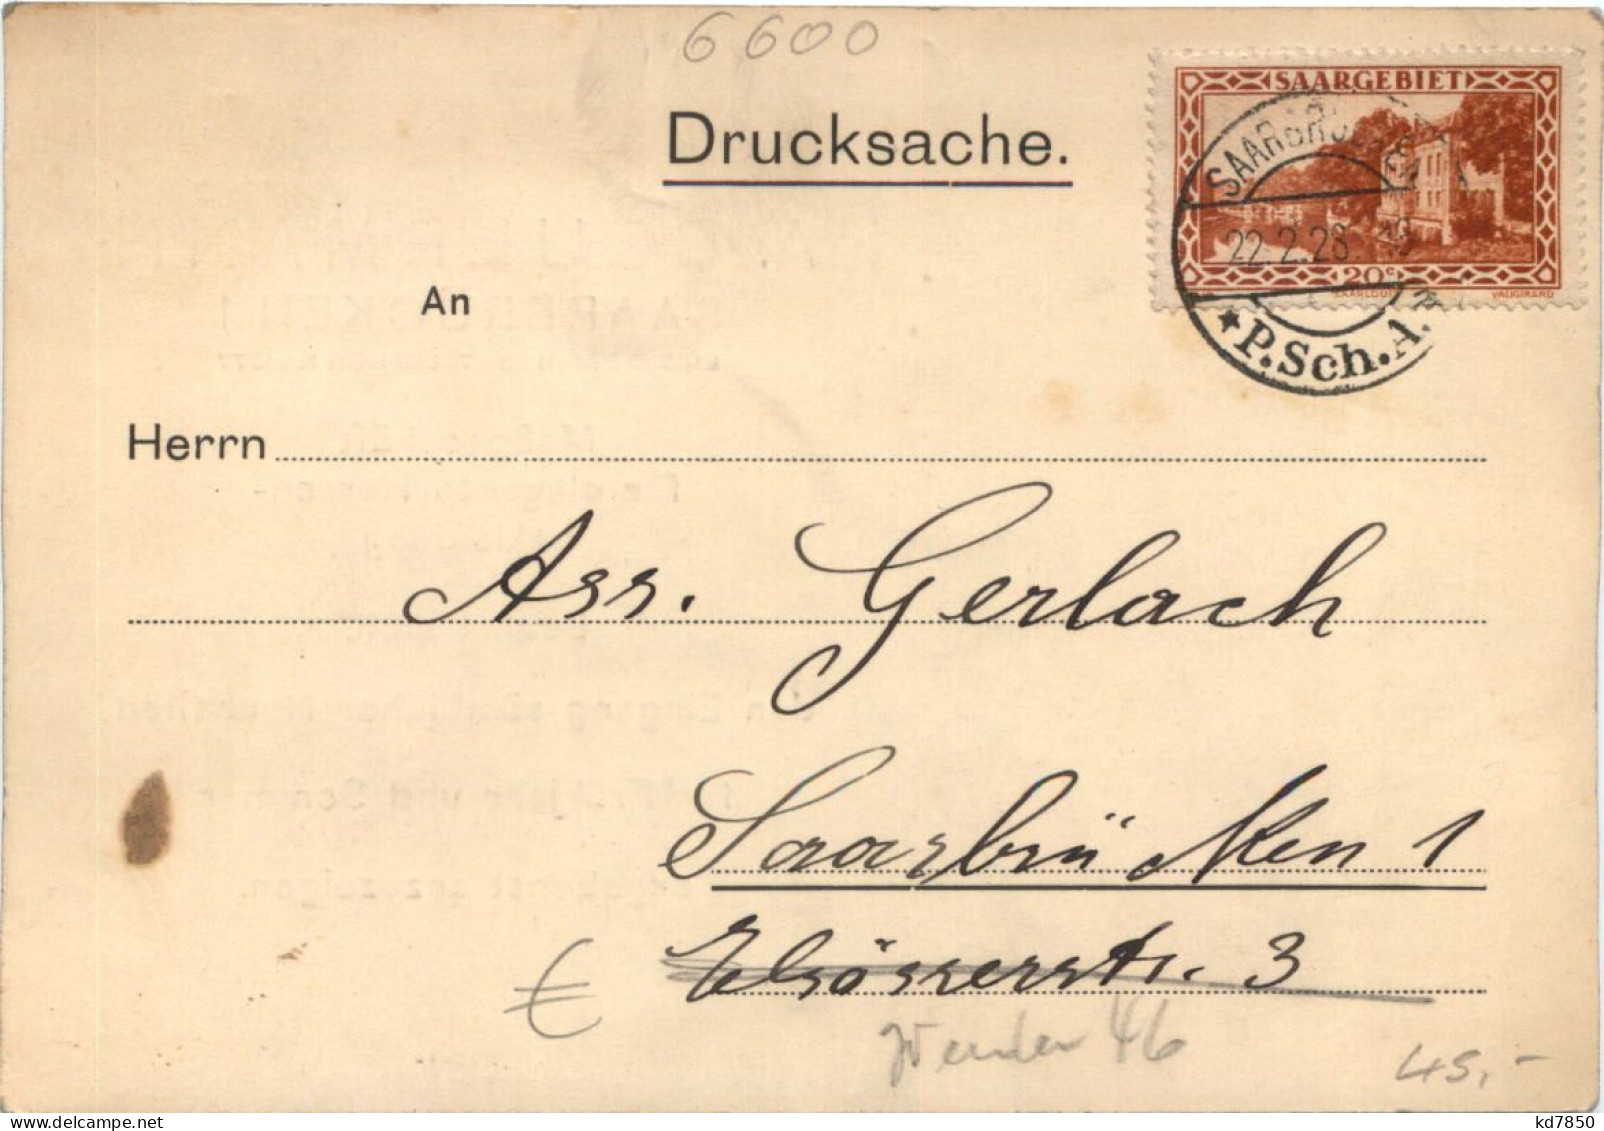 6600
Drucksache.
SAARGEBIET
SAARBRÜCKEN
22.2.28
20c
SAARLOUIS
VAUGIRARD
★ P.Sch.A.
An
Herrn
Ass. Gerlach
Saarbrücken 1
Elsässerstr. 3
€
46
45,-
kd7850